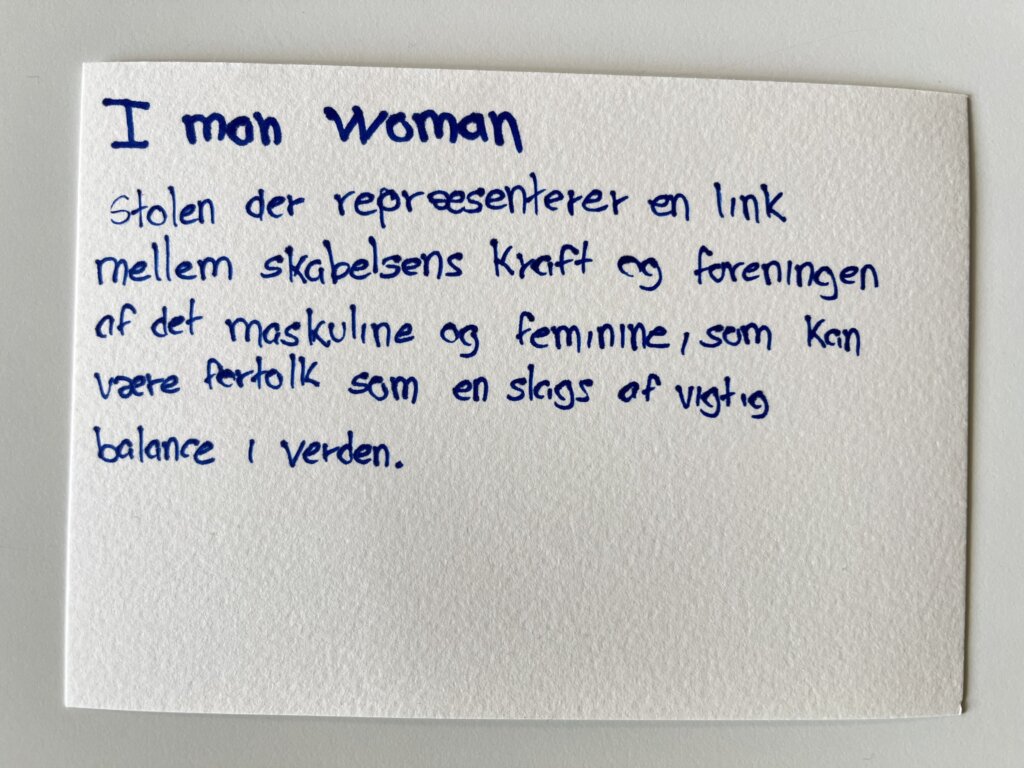 I man woman
Stolen der repræsenterer en link
mellem skabelsens kraft og foreningen
af det maskuline og feminine, som kan
være fertolk som en slags af vigtig
balance i verden.